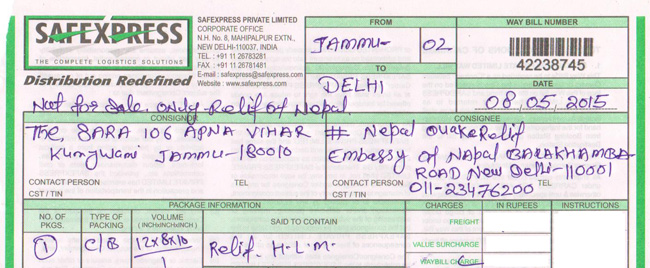 SAFEXPRESS
THE COMPLETE LOGISTICS SOLUTIONS
Distribution Redefined
SAFEXPRESS PRIVATE LIMITED
CORPORATE OFFICE
N.H. No. 8, MAHIPALPUR EXTN.,
NEW DELHI-110037, INDIA
TEL. : +91 11 26783281
FAX : +91 11 26781481
E-mail : safexpress@safexpress.com
Website : www.safexpress.com
FROM
JAMMU- 02
TO
DELHI
WAY BILL NUMBER
42238745
DATE
08.05.2015
Not for Sale. only-Relif of Nepal.
CONSIGNOR
The, SARA 106 APNA VIHAR
Kunjwani JAMMU-180010
CONTACT PERSON TEL
CST / TIN
CONSIGNEE
# Nepal QuakeRelif
Embassy of Napal BARAKHAMBA-
ROAD New Delhi-110001
011-23476200
CONTACT PERSON TEL
CST / TIN
PACKAGE INFORMATION
CHARGES IN RUPEES INSTRUCTIONS
NO. OF PKGS. TYPE OF PACKING VOLUME (INCHxINCHxINCH) SAID TO CONTAIN
1 C/B 12x8x10 Relif. H.L.M.
FREIGHT
VALUE SURCHARGE
WAYBILL CHARGE